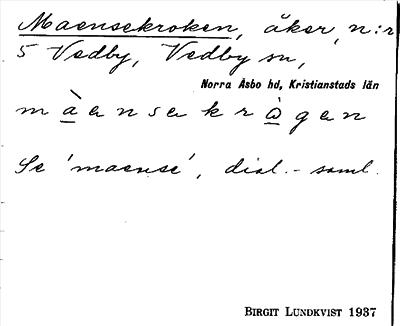 Maensekroken, åker, n:r
5 Vedby, Vedby sn,
Norra Åsbo hd, Kristianstads län
Se 'maense', dial.-saml.
BIRGIT LUNDKVIST 1937